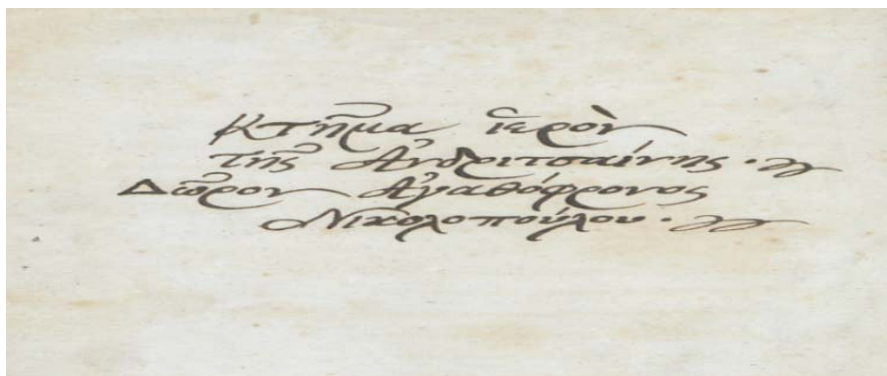 Κτῆμα ἱερὸν
τῆς Ἀνδριτσαίνης.
Δῶρον Ἀγαθόφρονος
Νικολοπούλου.